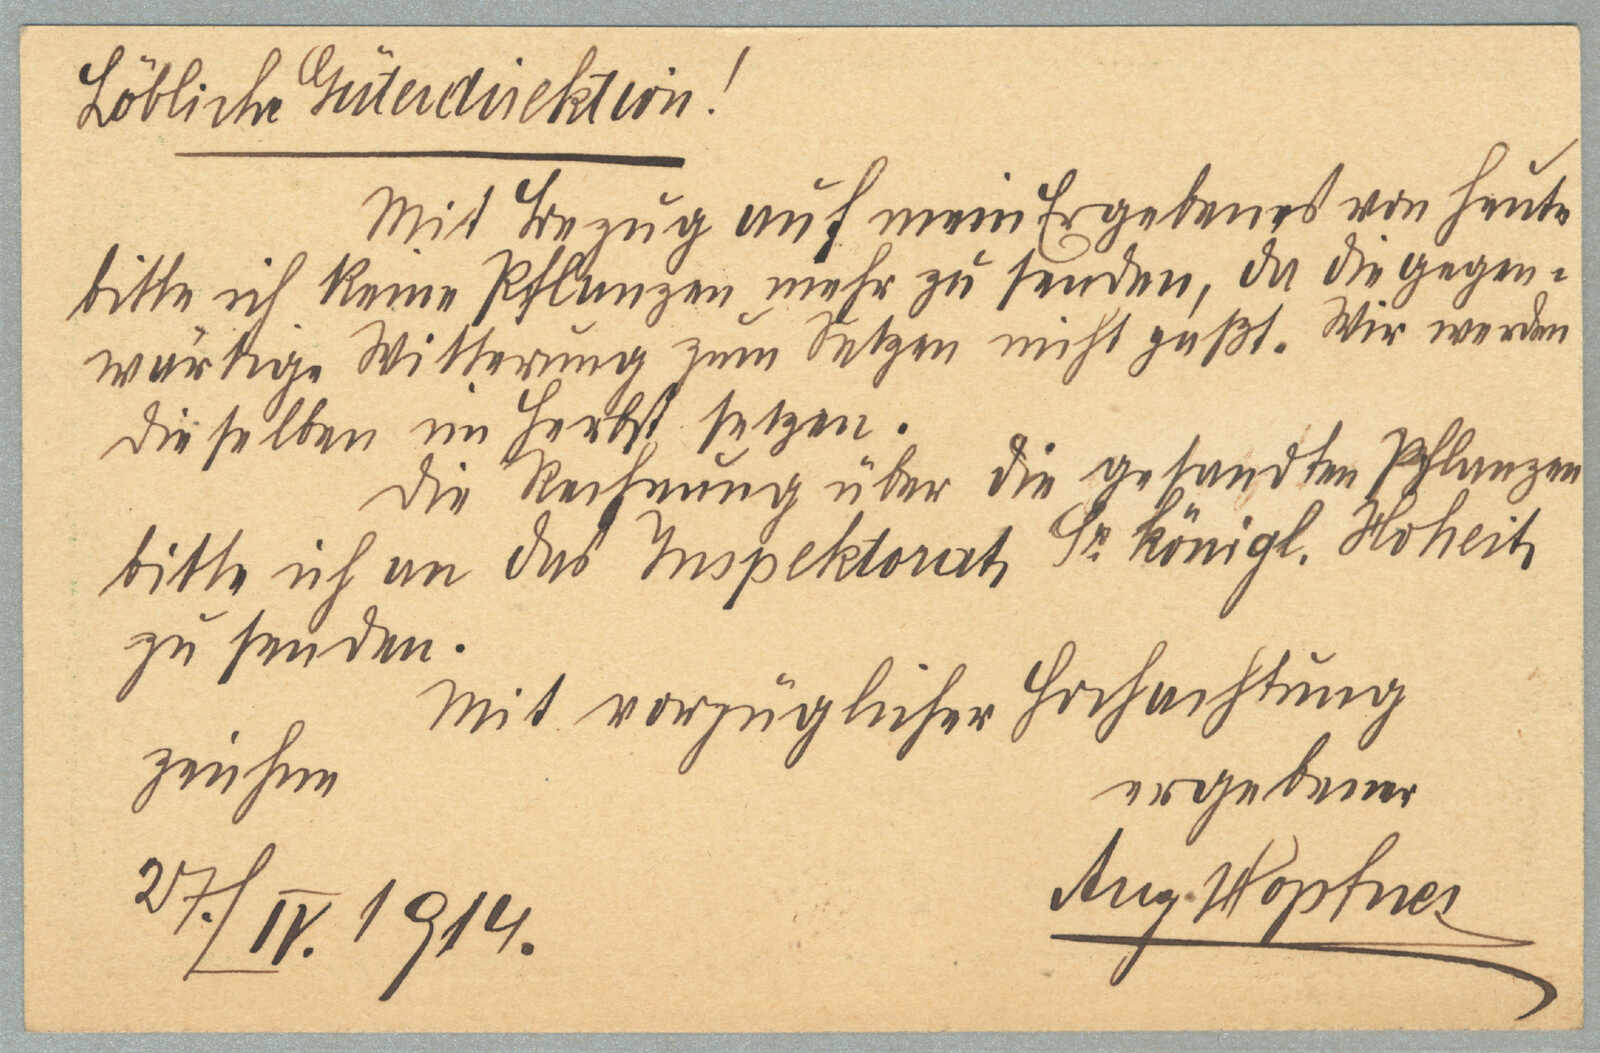 Löbliche Güterdirektion!
Mit Bezug auf mein Ergebenes von heute
bitte ich keine Pflanzen mehr zu senden, da die gegen-
wärtige Witterung zum Setzen nicht paßt. Wir werden
dieselben im Herbst setzen.
Die Rechnung über die gesandten Pflanzen
bitte ich an das Inspektorat Sr. königl. Hoheit
zu senden.
Mit vorzüglicher Hochachtung
zeichne
ergebener
Aug. Hopfner
27./IV. 1914.